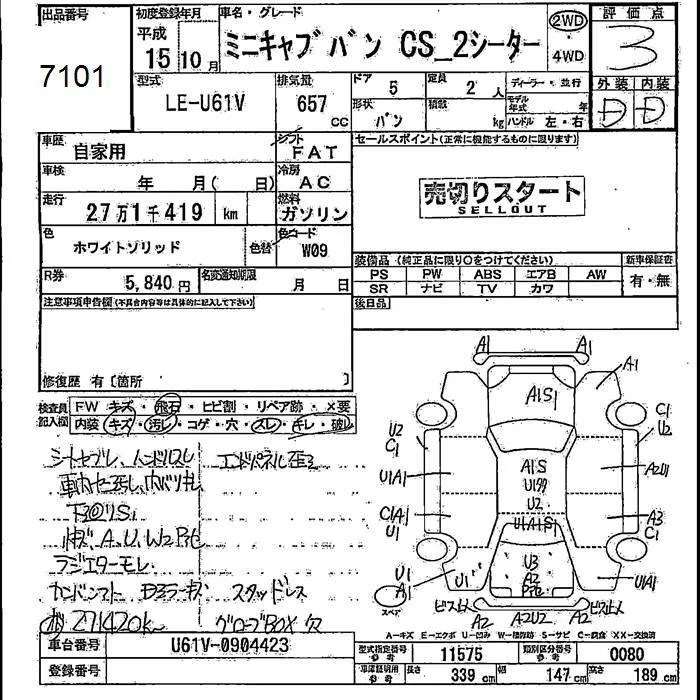 出品番号 初度登録年月 車名・グレード 2WD 評価点
7101 平成 15年 10月 ミニキャブ バン CS_2シーター ・ 4WD 3
型式 排気量 ドア 5 定員 2 人 ディーラー・並行 外装 内装
LE-U61V 657 cc 形状 バン 積載 kg モデル年式 年 ハンドル 左・右 D D
車歴 自家用 シフト FAT セールスポイント(正常に機能するものに限ります)
車検 年 月( 日) 冷房 AC
売切りスタート
SELLOUT
走行 27万1千419 km 燃料 ガソリン
色 ホワイトソリッド 色替 色コード W09
装備品 (純正品に限り○をつけてください) 新車保証書
PS PW ABS エアB AW 有・無
SR ナビ TV カワ
R券 5,840円 名変通知期限 月 日
後日品
注意事項申告欄(不具合内容等は具体的に記入して下さい)
修復歴 有〔箇所 〕
検査員記入欄 FW キズ・飛石・ヒビ割・リペア跡・×要
内装 キズ・汚レ・コゲ・穴・スレ・キレ・破レ
シートヤブレ、ハンドルスレ エンドパネル歪ミ
ラジエターモレ
スタッドレス
走 271420km グローブBOX欠
A1 A1
A1
A1S1
U2 C1
C1 U2
A1S
U1A1 A2U1
U2
C1A1 U1 U1A1S1 A3 C1
U1 A1 U1 U3 A2 U1A1
スペア
ビス止 A2 A2U2 A2 ビス止
A-キズ E-エクボ U-凹み W-補修跡 S-サビ C-腐食 XX-交換済
車台番号 U61V-0904423 型式指定番号 参考 11575 類別区分番号 参考 0080
登録番号 車庫証明用 参考 長さ 339 cm 幅 147 cm 高さ 189 cm